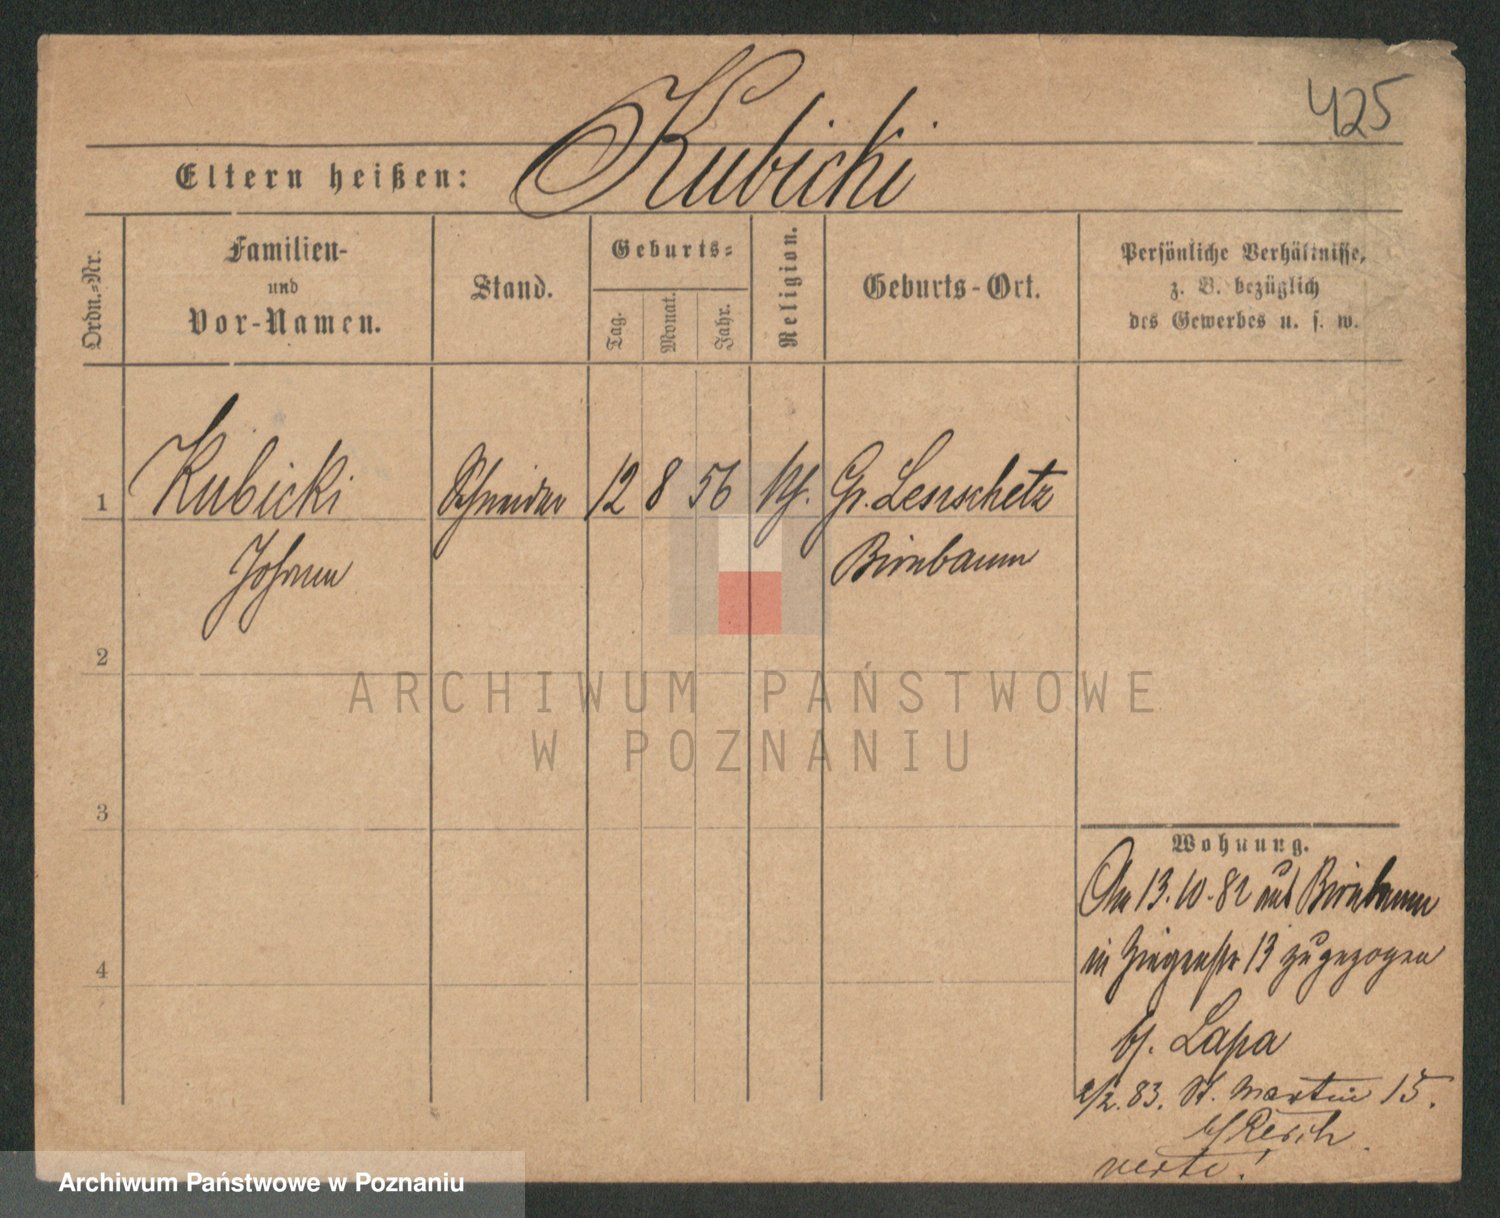 425
Kubicki
Eltern heißen:
Ordn.-Nr.
Familien-
und
Vor-Namen.
Stand.
Geburts-
Tag.
Monat.
Jahr.
Religion.
Geburts-Ort.
Persönliche Verhältnisse,
z. B. bezüglich
des Gewerbes u. s. w.
1 Kubicki Schneider 12 8 56 kth. Gr. Lenschetz
Johann Birnbaum
2
3
4
ARCHIWUM PAŃSTWOWE
W POZNANIU
Wohnung.
Am 13.10.82 aus Birnbaum
in Ziegenstr 13 zugezogen
bei Lapa
2/2.83. St. Martin 15.
bei Resch
verte!
Archiwum Państwowe w Poznaniu